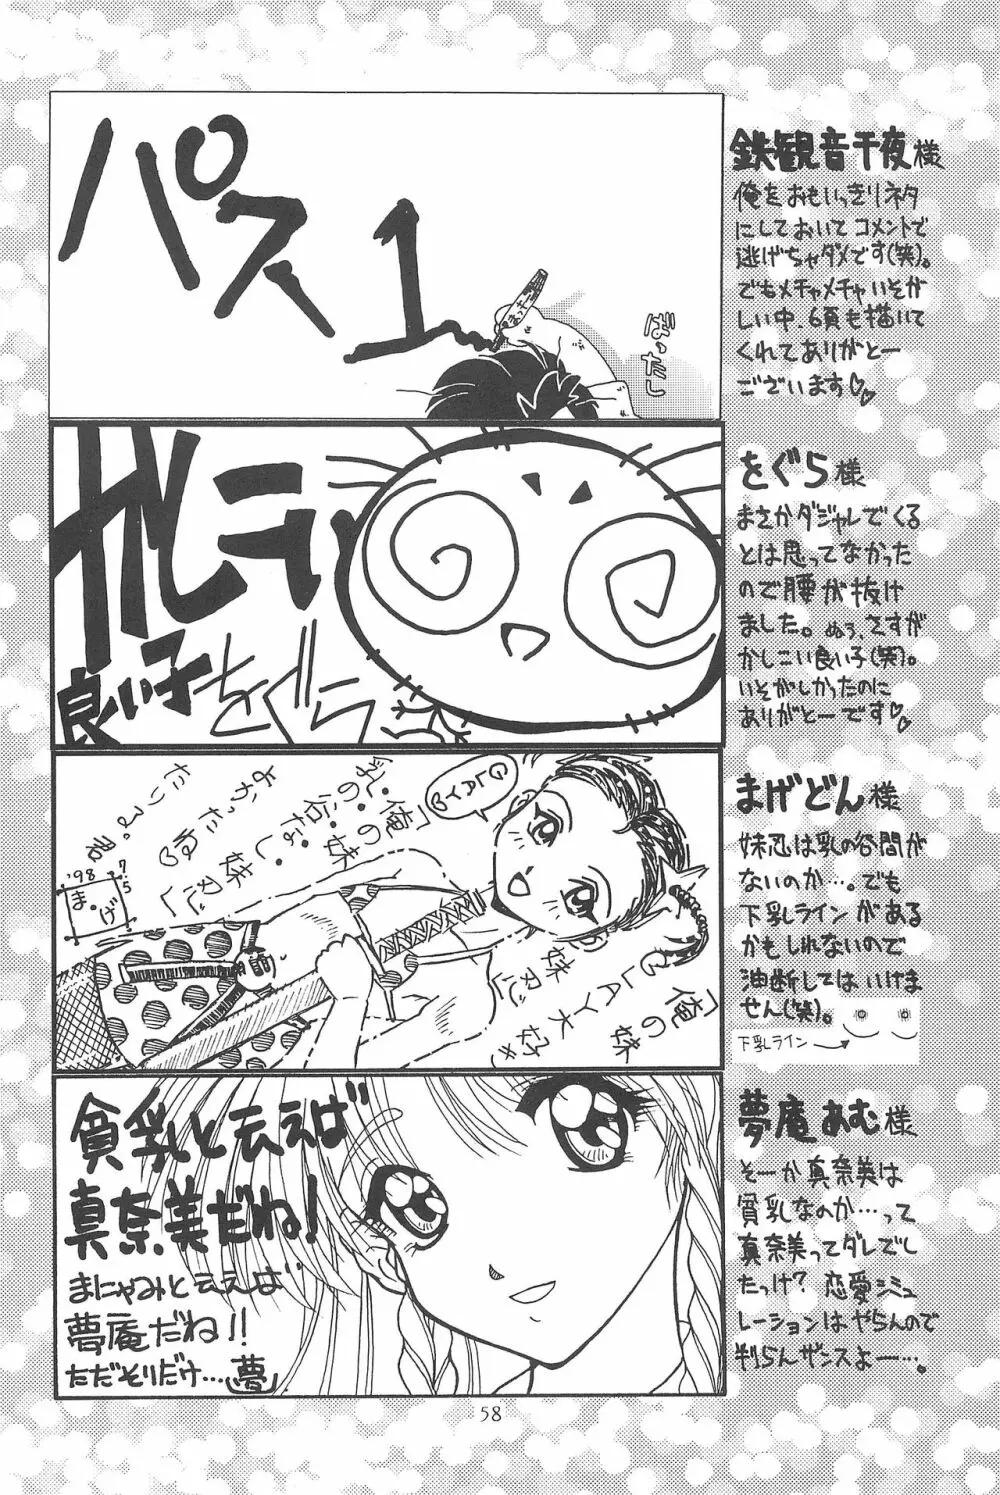 パス1
ばったし
鉄観音千夜様
俺をおもいっきりネタ
にしておいてコメントで
逃げちゃダメです(笑)。
でもメチャメチャいそが
しい中、6頁も描いて
くれてありがとー
ございます♡♡
かしこい
良い子
をぐら
をぐら様
まさかダジャレでくる
とは思ってなかった
ので腰が抜け
ました。ぬぅ、さすが
かしこい良い子(笑)。
いそがしかったのに
ありがとーです♡♡
GLAY♡
「俺の妹
GLAY大好き
妹忍
「俺の妹
乳の谷なし
妹忍」
よかったね♡
たりぶ君
'98 7/5
まげ
まげどん様
妹忍は乳の谷間が
ないのか…。でも
下乳ラインがある
かもしれないので
油断してはいけま
せん(笑)。
下乳ライン→
貧乳と云えば
真奈美だね!
まにゃみと云えば
夢庵だね!!
ただそりだけ…夢
夢庵あむ様
そーか真奈美は
貧乳なのか…って
真奈美ってダレでし
たっけ? 恋愛シミュ
レーションはやらんので
判らんザンスよー…。
58